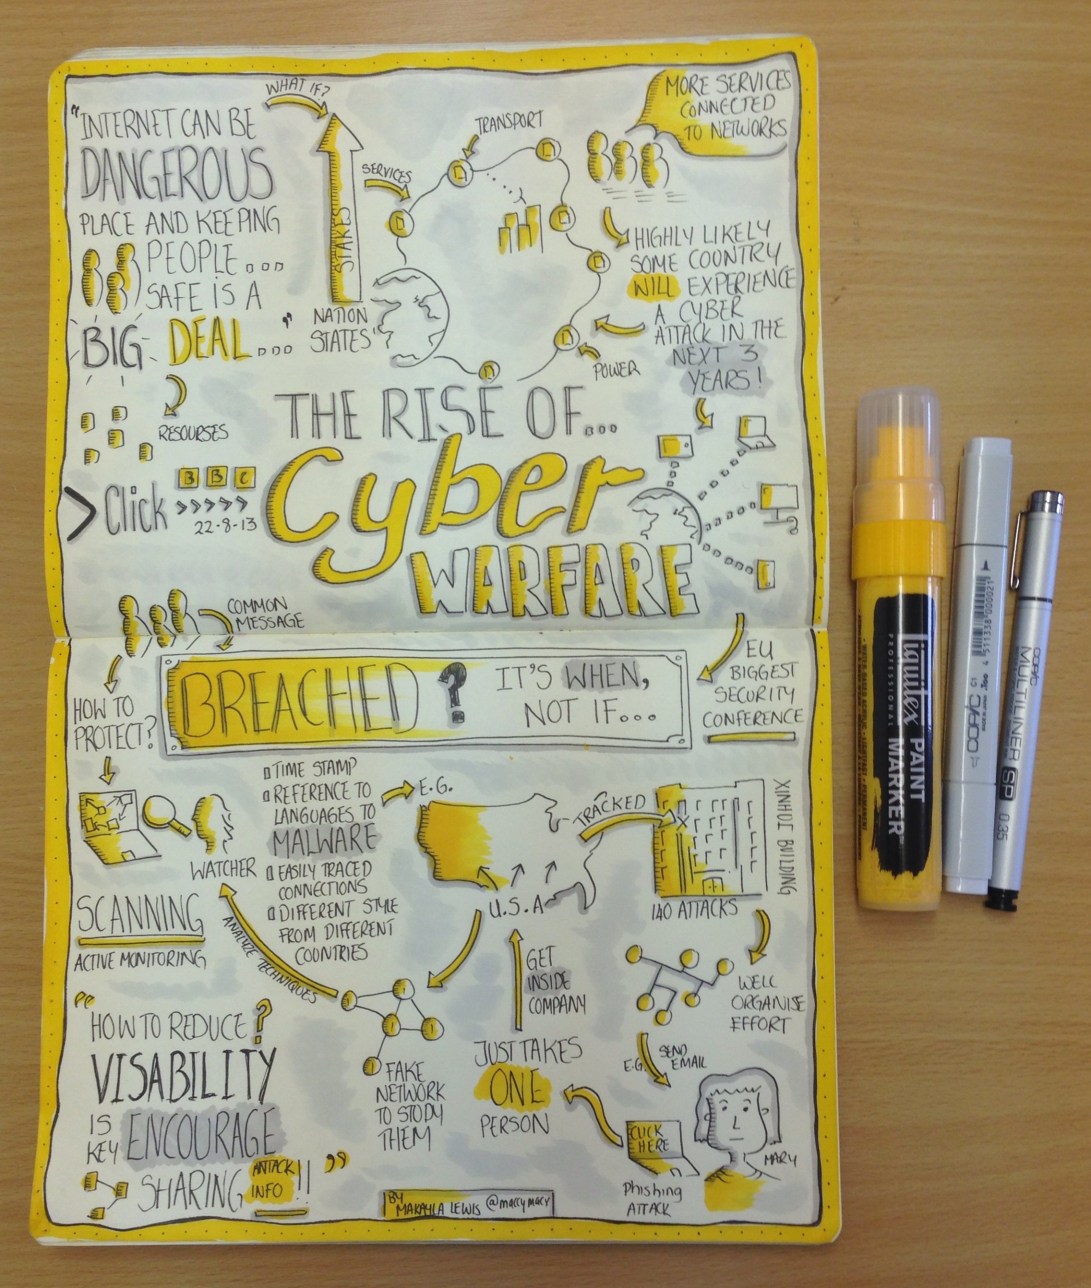 "INTERNET CAN BE
DANGEROUS
PLACE AND KEEPING
PEOPLE...
SAFE IS A
BIG DEAL..."
RESOURSES
WHAT IF?
STAKES
NATION
STATES
SERVICES
TRANSPORT
POWER
MORE SERVICES
CONNECTED
TO NETWORKS
HIGHLY LIKELY
SOME COUNTRY
WILL EXPERIENCE
A CYBER
ATTACK IN THE
NEXT 3
YEARS!
THE RISE OF...
Cyber
WARFARE
> Click
BBC
>>>>>
22-8-13
COMMON
MESSAGE
BREACHED? IT'S WHEN,
NOT IF...
EU
BIGGEST
SECURITY
CONFERENCE
HOW TO
PROTECT?
WATCHER
SCANNING
ACTIVE MONITORING
TIME STAMP
REFERENCE TO
LANGUAGES TO
MALWARE
EASILY TRACED
CONNECTIONS
DIFFERENT STYLE
FROM DIFFERENT
COUNTRIES
ANALYZE TECHNIQUES
E.G.
U.S.A
TRACKED
XINHUI BUILDING
140 ATTACKS
WELL
ORGANISE
EFFORT
E.G. SEND
EMAIL
MARY
CLICK
HERE
Phishing
ATTACK
JUST TAKES
ONE
PERSON
GET
INSIDE
COMPANY
FAKE
NETWORK
TO STUDY
THEM
"HOW TO REDUCE?
VISABILITY
IS
KEY ENCOURAGE
SHARING ATTACK
INFO!!"
BY
MAKAYLA LEWIS @maccymacy
Liquitex
PROFESSIONAL
PAINT
MARKER
4 511338 000021
copic
copic
MULTILINER SP 0.35